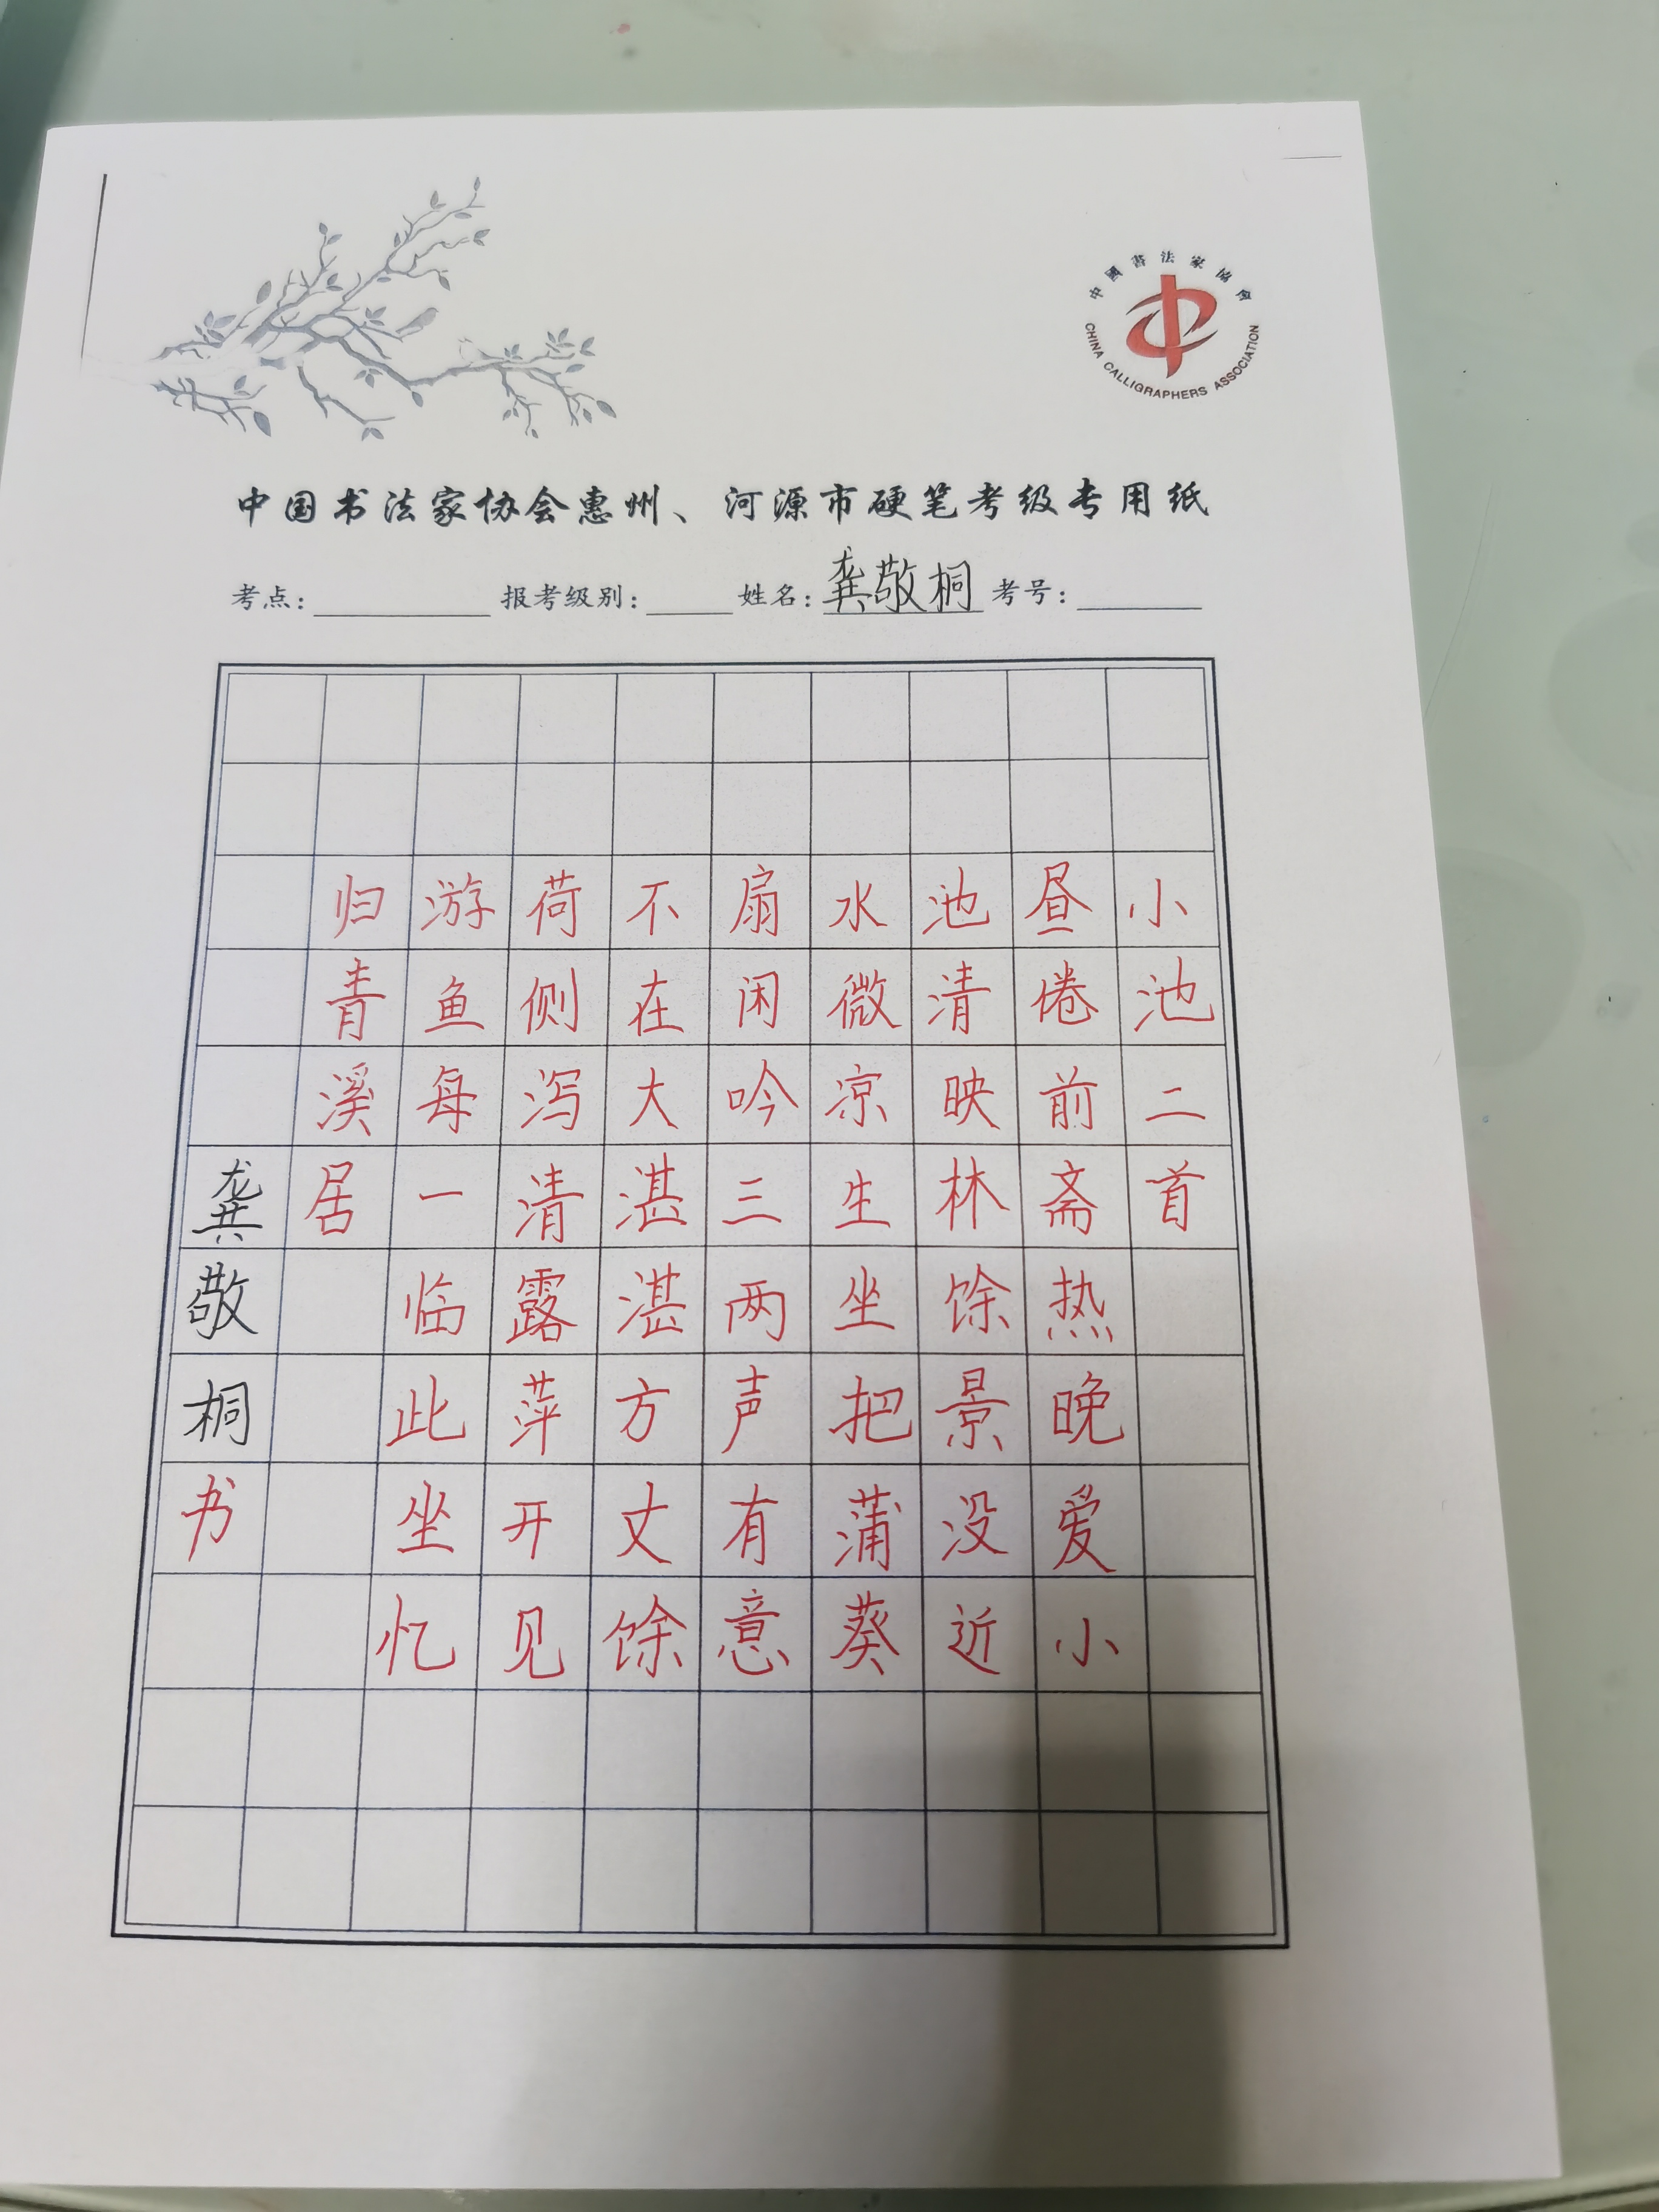 中國書法家協會
CHINA CALLIGRAPHERS ASSOCIATION
中国书法家协会惠州、河源市硬笔考级专用纸
考点: 报考级别: 姓名:龚敬桐 考号:
小池二首
昼倦前斋热晚爱小
池清映林馀景没近
水微凉生坐把蒲葵
扇闲吟三两声有意
不在大湛湛方丈馀
荷侧泻清露萍开见
游鱼每一临此坐忆
归青溪居
龚敬桐书